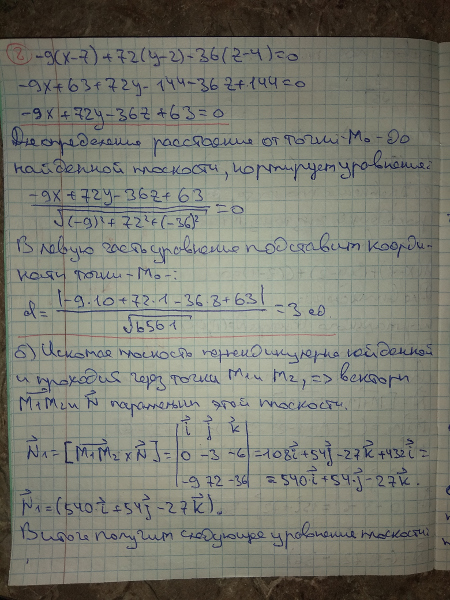 2) -9(x-7)+72(y-2)-36(z-4)=0
-9x+63+72y-144-36z+144=0
-9x+72y-36z+63=0
Для определения расстояние от точки-M₀-до
найденной плоскости, нормируем уравнение:
-9x+72y-36z+63
√(-9)²+72²+(-36)² =0
В левую часть уравнения подставим коорди-
наты точки-M₀-:
d= |-9·10+72·1-36·8+63|
√6561 =3 ед
б) Искомая плоскость перпендикулярна найденной
и проходит через точки M₁ и M₂, => векторы
M₁M₂ и N параллельны этой плоскости.
i j k
N₁=[M₁M₂×N]= 0 -3 -6 =108i+54j-27k+432i=
-9 72 -36 =540·i+54·j-27·k.
N₁=(540·i+54j-27k).
В итоге получим следующее уравнение плоскости: